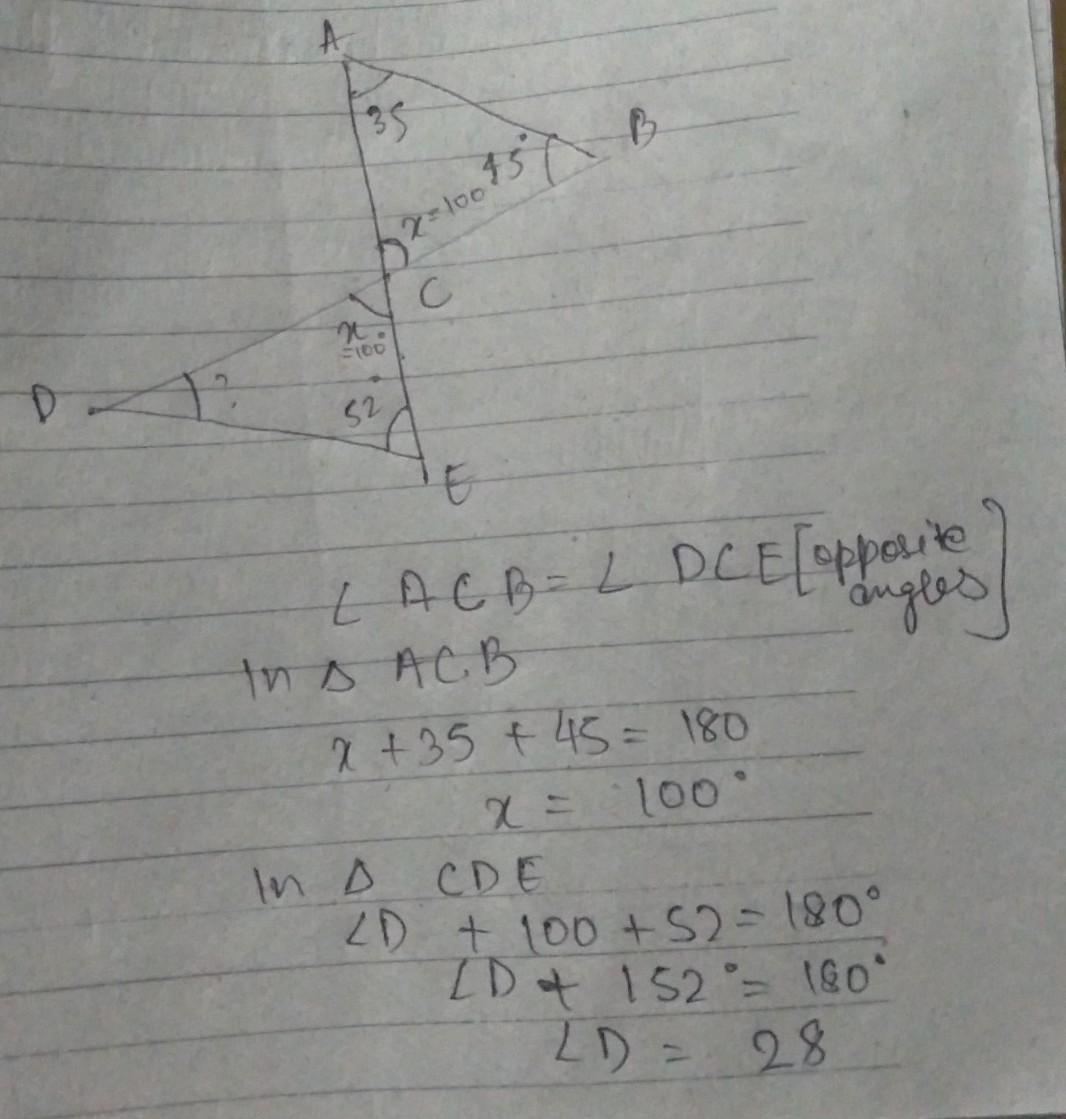 A
35
B
45°
x=100
C
x
=100°
D
?
52°
E
∠ ACB = ∠ DCE [opposite angles]
In Δ ACB
x + 35 + 45 = 180
x = 100°
In Δ CDE
∠D + 100 + 52 = 180°
∠D + 152° = 180°
∠D = 28